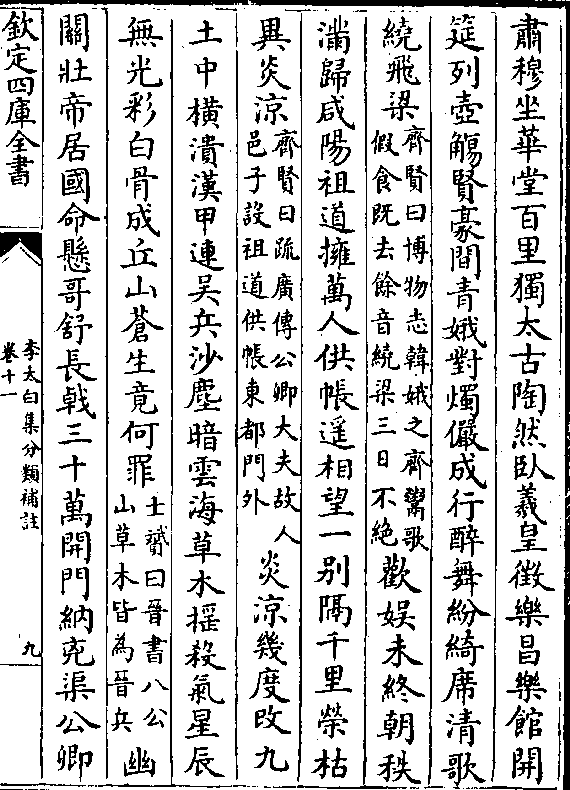 肅穆坐華堂百里獨太古陶然臥羲皇徵樂昌樂館開
筵列壺觴賢豪間青娥對燭儼成行醉舞紛綺席清歌
繞飛梁齊賢曰博物志韓娥之齊鬻歌假食既去餘音繞梁三日不絶歡娛未終朝秩
滿歸咸陽祖道擁萬人供帳遥相望一别隔千里榮枯
異炎涼齊賢曰疏廣傳公卿大夫故人邑子設祖道供帳東都門外炎涼幾度改九
土中横潰漢甲連吳兵沙塵暗雲海草木揺殺氣星辰
無光彩白骨成丘山蒼生竟何罪士贇曰晉書八公山草木皆為晉兵幽
關壯帝居國命懸哥舒長戟三十萬開門納兇渠公卿
欽定四庫全書
李太白集分類補註
卷十一
九